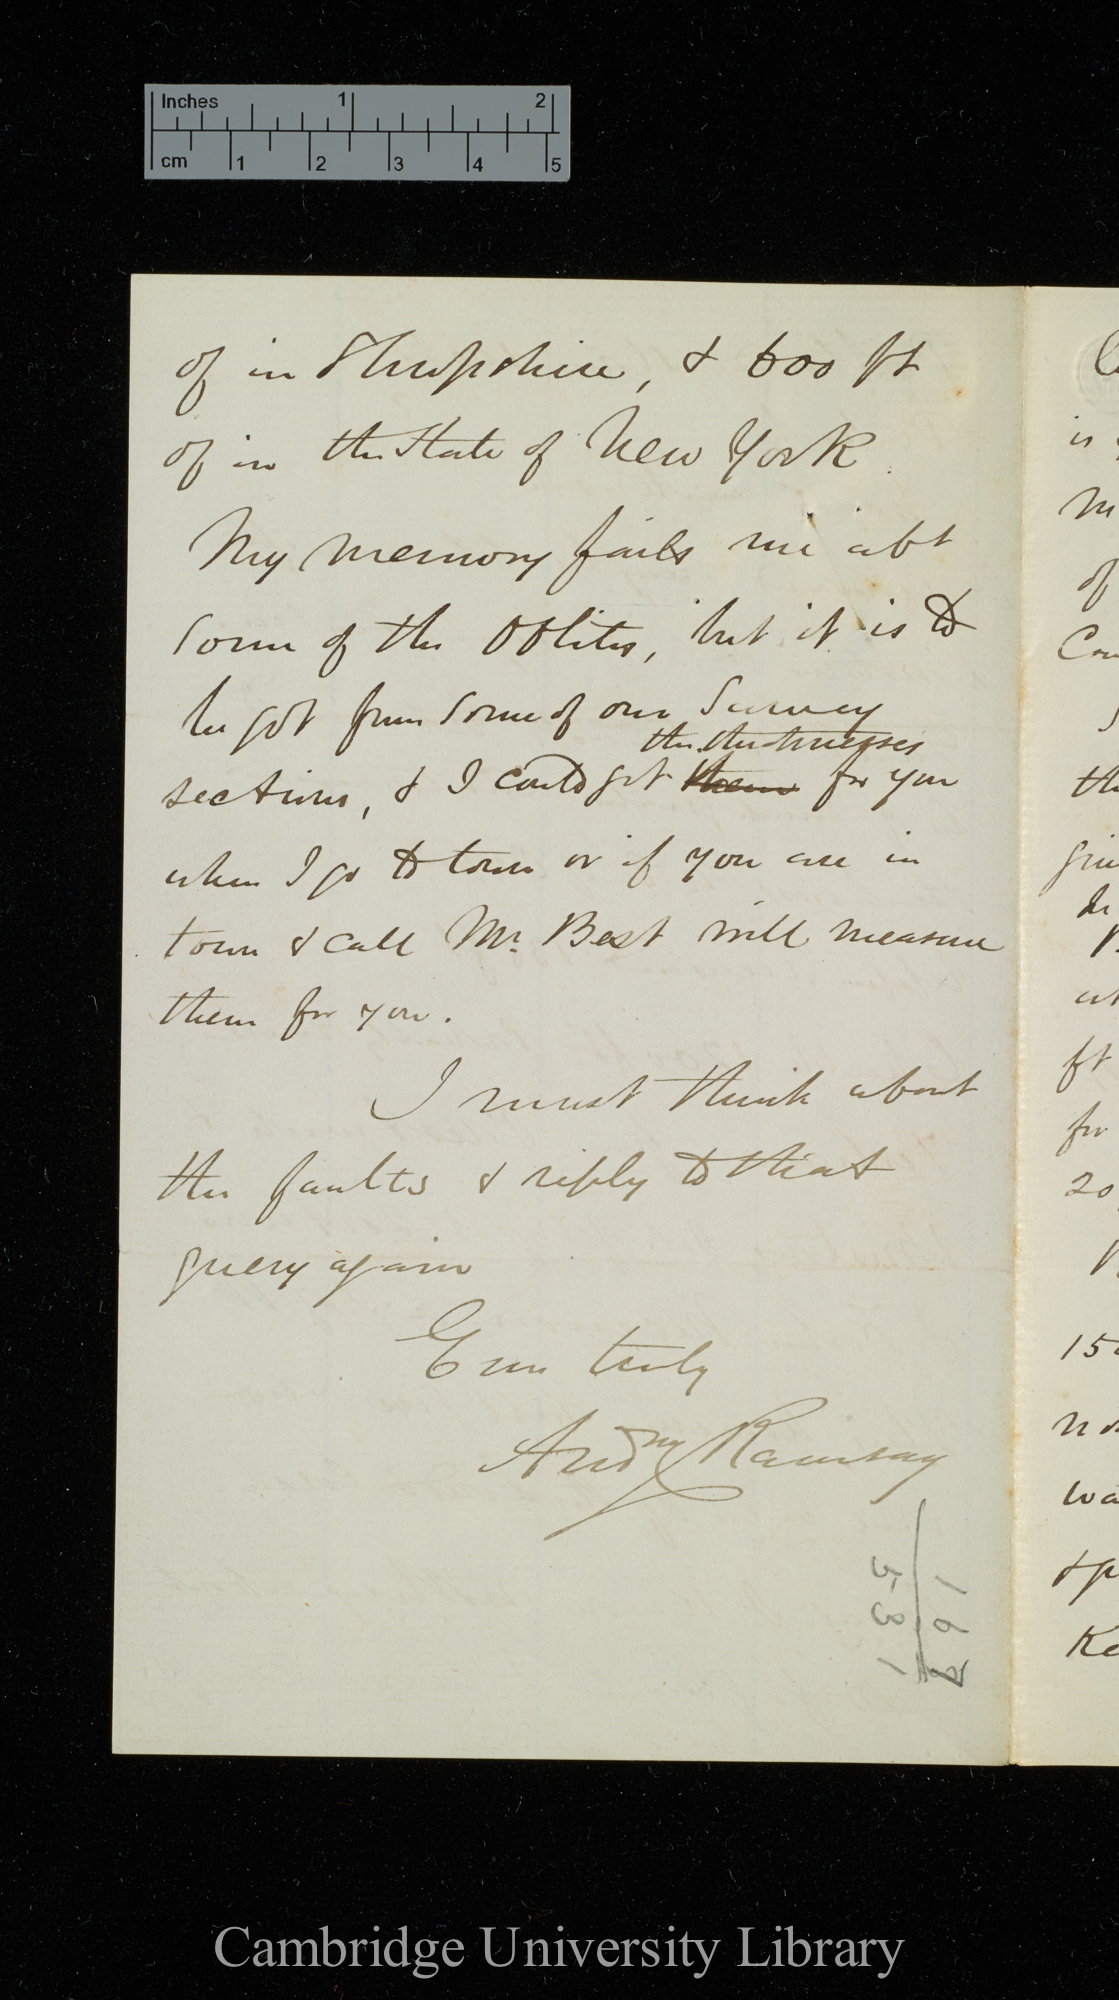 Inches 1 2
cm 1 2 3 4 5
of in Shropshire, & 600 ft
of in the State of New York.
My memory fails me abt
some of the Oolites, but it is to
be got from some of our Survey
the thicknesses
sections, & I could get them for you
when I go to town or if you are in
town & call Mr. Best will measure
them for you.
I must think about
the faults & reply to that
query again
Ever truly
Andw Ramsay
167
531
is
of
th
ft
for
20
Cambridge University Library